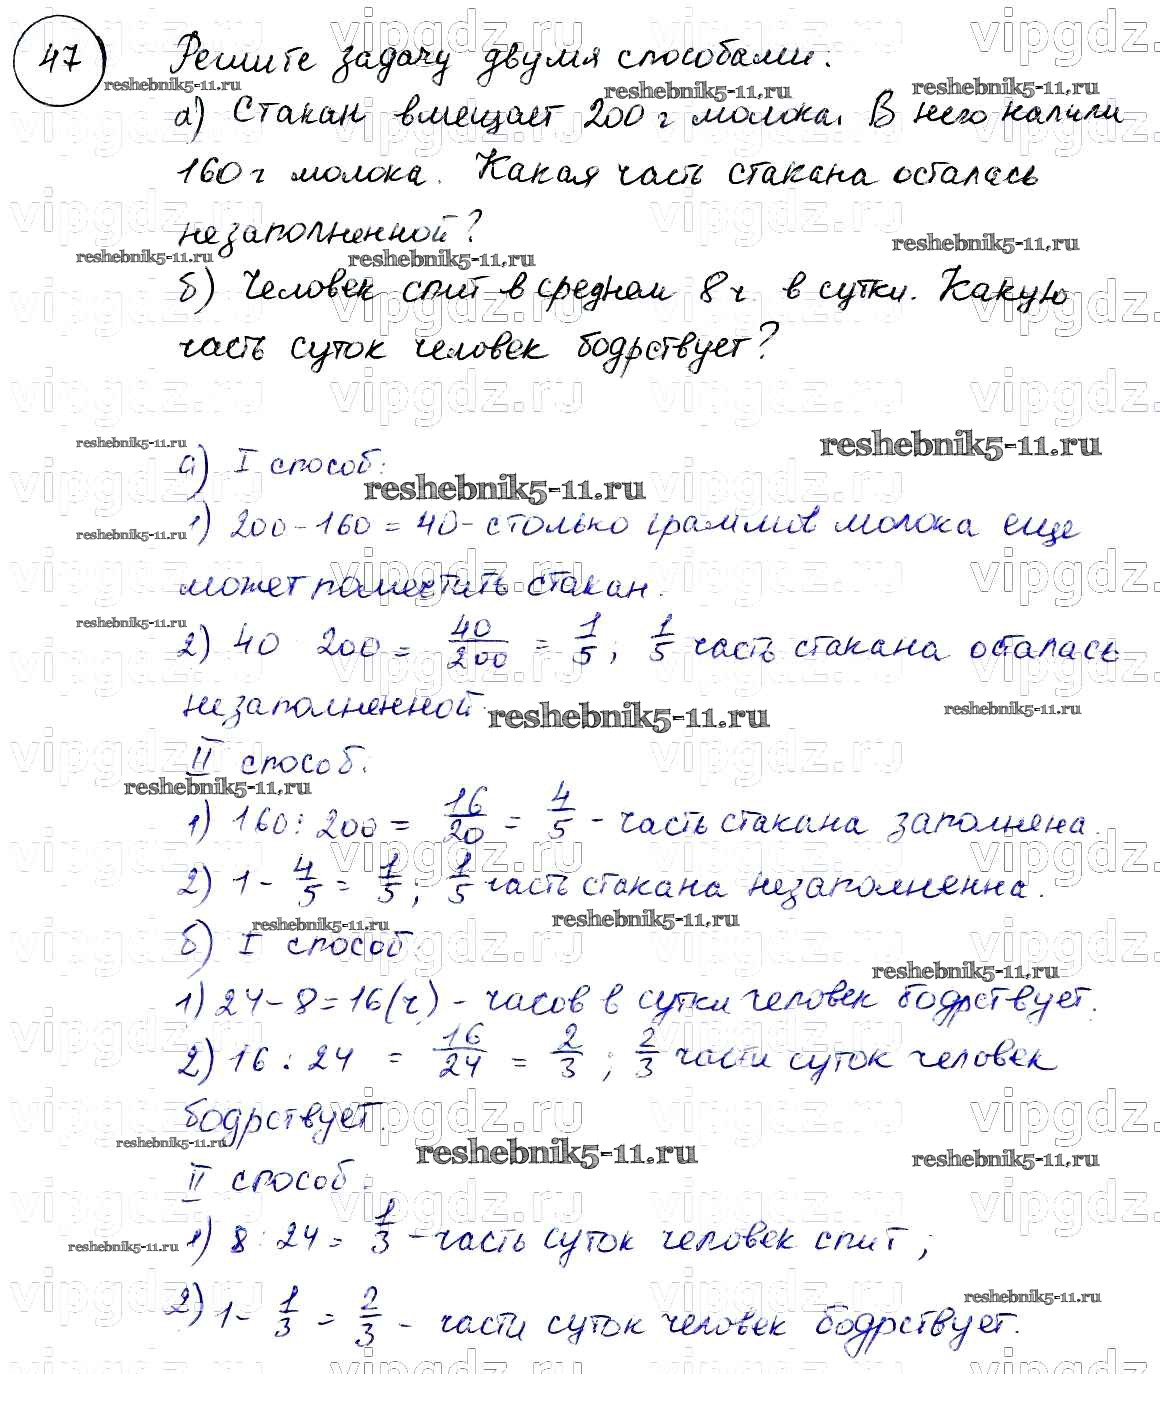 47) Решите задачу двумя способами:
а) Стакан вмещает 200 г молока. В него налили
160 г молока. Какая часть стакана осталась
незаполненной?
б) Человек спит в среднем 8 ч в сутки. Какую
часть суток человек бодрствует?
а) I способ:
1) 200 - 160 = 40 - столько граммов молока еще
может поместить стакан.
2) 40 200 = 40/200 = 1/5; 1/5 часть стакана осталась
незаполненной.
II способ.
1) 160 : 200 = 16/20 = 4/5 - часть стакана заполнена.
2) 1 - 4/5 = 1/5; 1/5 часть стакана незаполненна.
б) I способ
1) 24 - 8 = 16 (ч) - часов в сутки человек бодрствует.
2) 16 : 24 = 16/24 = 2/3; 2/3 части суток человек
бодрствует.
II способ:
1) 8 : 24 = 1/3 - часть суток человек спит;
2) 1 - 1/3 = 2/3 - части суток человек бодрствует.
vipgdz.ru
reshebnik5-11.ru